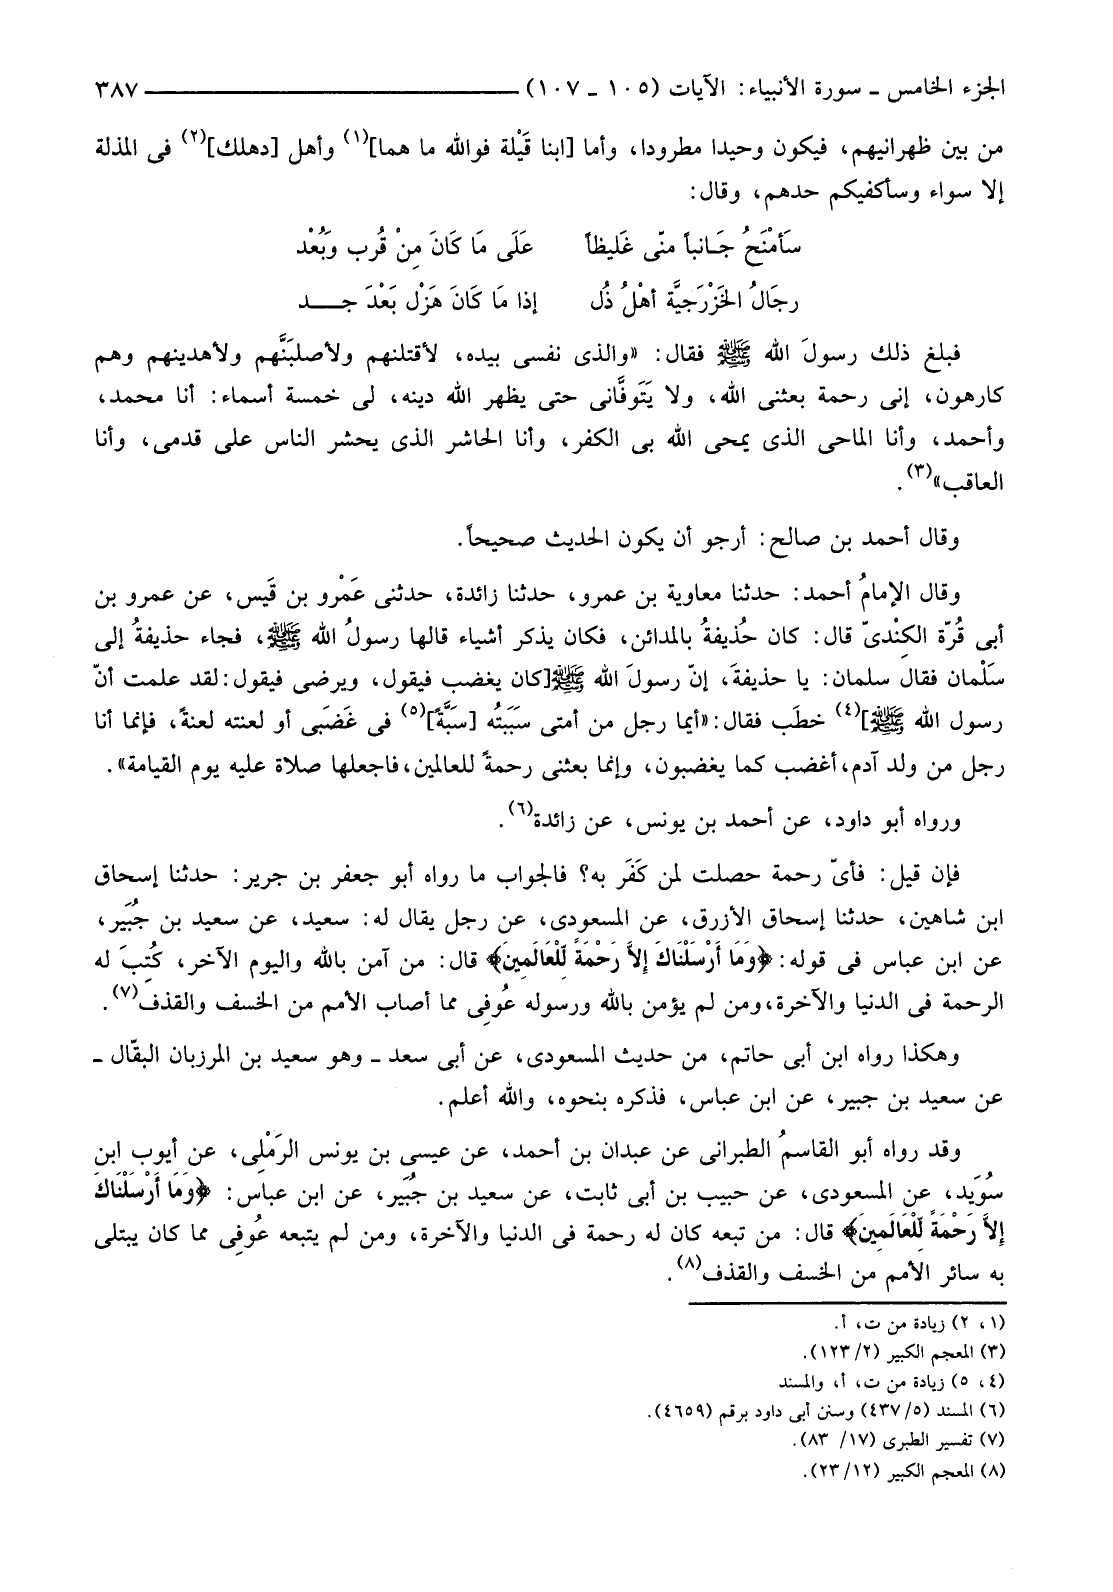 الجزء الخامس ـ سورة الأنبياء: الآيات (١٠٥ ـ ١٠٧) ٣٨٧
من بين ظهرانيهم، فيكون وحيدا مطرودا، وأما [ابنا قَيْلة فوالله ما هما](١) وأهل [دهلك](٢) فى المذلة
إلا سواء وسأكفيكم حدهم، وقال:
سَأمْنَحُ جَـانباً منّى غَليظاً على مَا كَانَ مِنْ قُرب وَبُعْد
رجَالُ الخَزْرَجيَّة أهْلُ ذُل إذا مَا كَانَ هَزْل بَعْدَ جـــد
فبلغ ذلك رسولَ الله ﷺ فقال: «والذى نفسى بيده، لأقتلنهم ولأصلبَنَّهم ولأهدينهم وهم
كارهون، إنى رحمة بعثنى الله، ولا يَتَوفَّانى حتى يظهر الله دينه، لى خمسة أسماء: أنا محمد،
وأحمد، وأنا الماحى الذى يمحى الله بى الكفر، وأنا الحاشر الذى يحشر الناس على قدمى، وأنا
العاقب»(٣).
وقال أحمد بن صالح: أرجو أن يكون الحديث صحيحاً.
وقال الإمامُ أحمد: حدثنا معاوية بن عمرو، حدثنا زائدة، حدثنى عَمْرو بن قَيس، عن عمرو بن
أبى قُرّة الكِنْدىّ قال: كان حُذيفةُ بالمدائن، فكان يذكر أشياء قالها رسولُ الله ﷺ، فجاء حذيفةُ إلى
سَلْمان فقال سلمان: يا حذيفةَ، إنّ رسولَ الله ﷺ[كان يغضب فيقول، ويرضى فيقول:لقد علمت أنّ
رسول الله ﷺ](٤) خطَب فقال:«أيما رجل من أمتى سَبَبتُه [سَبَّةً](٥) فى غَضَبى أو لعنته لعنةً، فإنما أنا
رجل من ولد آدم،أغضب كما يغضبون، وإنما بعثنى رحمةً للعالمين،فاجعلها صلاة عليه يوم القيامة».
ورواه أبو داود، عن أحمد بن يونس، عن زائدة(٦).
فإن قيل: فأىّ رحمة حصلت لمن كَفَر به؟ فالجواب ما رواه أبو جعفر بن جرير: حدثنا إسحاق
ابن شاهين، حدثنا إسحاق الأزرق، عن المسعودى، عن رجل يقال له: سعيد، عن سعيد بن جُبَير،
عن ابن عباس فى قوله: ﴿وَمَا أَرْسَلْنَاكَ إِلاَّ رَحْمَةً لِّلْعَالَمِينَ﴾ قال: من آمن بالله واليوم الآخر، كُتِبَ له
الرحمة فى الدنيا والآخرة،ومن لم يؤمن بالله ورسوله عُوفِى مما أصاب الأمم من الخسف والقذف(٧).
وهكذا رواه ابن أبى حاتم، من حديث المسعودى، عن أبى سعد ـ وهو سعيد بن المرزبان البقّال ـ
عن سعيد بن جبير، عن ابن عباس، فذكره بنحوه، والله أعلم.
وقد رواه أبو القاسمُ الطبرانى عن عبدان بن أحمد، عن عيسى بن يونس الرَمْلِى، عن أيوب ابن
سُوَيد، عن المسعودى، عن حبيب بن أبى ثابت، عن سعيد بن جُبَير، عن ابن عباس: ﴿وَمَا أَرْسَلْنَاكَ
إِلاَّ رَحْمَةً لِّلْعَالَمِينَ﴾ قال: من تبعه كان له رحمة فى الدنيا والآخرة، ومن لم يتبعه عُوفِى مما كان يبتلى
به سائر الأمم من الخسف والقذف(٨).
(١، ٢) زيادة من ت، أ.
(٣) المعجم الكبير (٢/ ١٢٣).
(٤، ٥) زيادة من ت، أ، والمسند
(٦) المسند (٥/ ٤٣٧) وسنن أبى داود برقم (٤٦٥٩).
(٧) تفسير الطبرى (١٧/ ٨٣).
(٨) المعجم الكبير (١٢/ ٢٣).